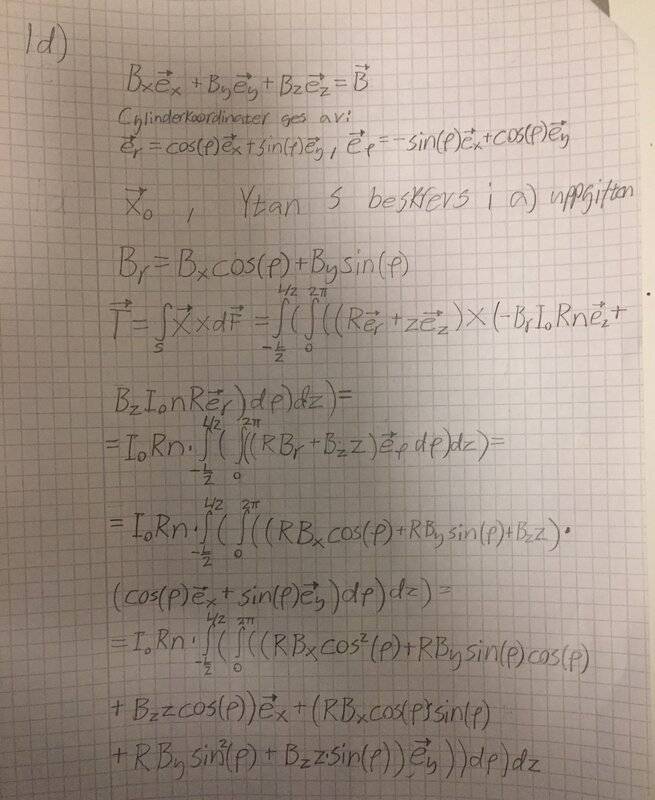 1d)
Bₓe⃗ₓ + Bᵧe⃗ᵧ + B_z e⃗_z = B⃗
Cylinderkoordinater ges av:
e⃗ᵣ = cos(ρ)e⃗ₓ + sin(ρ)e⃗ᵧ, e⃗ᵨ = -sin(ρ)e⃗ₓ + cos(ρ)e⃗ᵧ
X⃗₀ , Ytan S beskrevs i a) uppgiften
Bᵣ = Bₓcos(ρ) + Bᵧsin(ρ)
T⃗ = ∫_S X⃗ × dF⃗ = ∫_{-L/2}^{L/2} ( ∫_0^{2π} ((Re⃗ᵣ + ze⃗_z) × (-BᵣI₀Rne⃗_z +
B_z I₀nRe⃗ᵣ)dρ)dz) =
= I₀Rn · ∫_{-L/2}^{L/2} ( ∫_0^{2π} ((RBᵣ + B_z z)e⃗ᵨ dρ)dz) =
= I₀Rn · ∫_{-L/2}^{L/2} ( ∫_0^{2π} ((RBₓcos(ρ) + RBᵧsin(ρ) + B_z z) ·
(cos(ρ)e⃗ₓ + sin(ρ)e⃗ᵧ)dρ)dz) =
= I₀Rn · ∫_{-L/2}^{L/2} ( ∫_0^{2π} ((RBₓcos²(ρ) + RBᵧsin(ρ)cos(ρ)
+ B_z zcos(ρ))e⃗ₓ + (RBₓcos(ρ)·sin(ρ)
+ RBᵧsin²(ρ) + B_z z·sin(ρ))e⃗ᵧ))dρ)dz